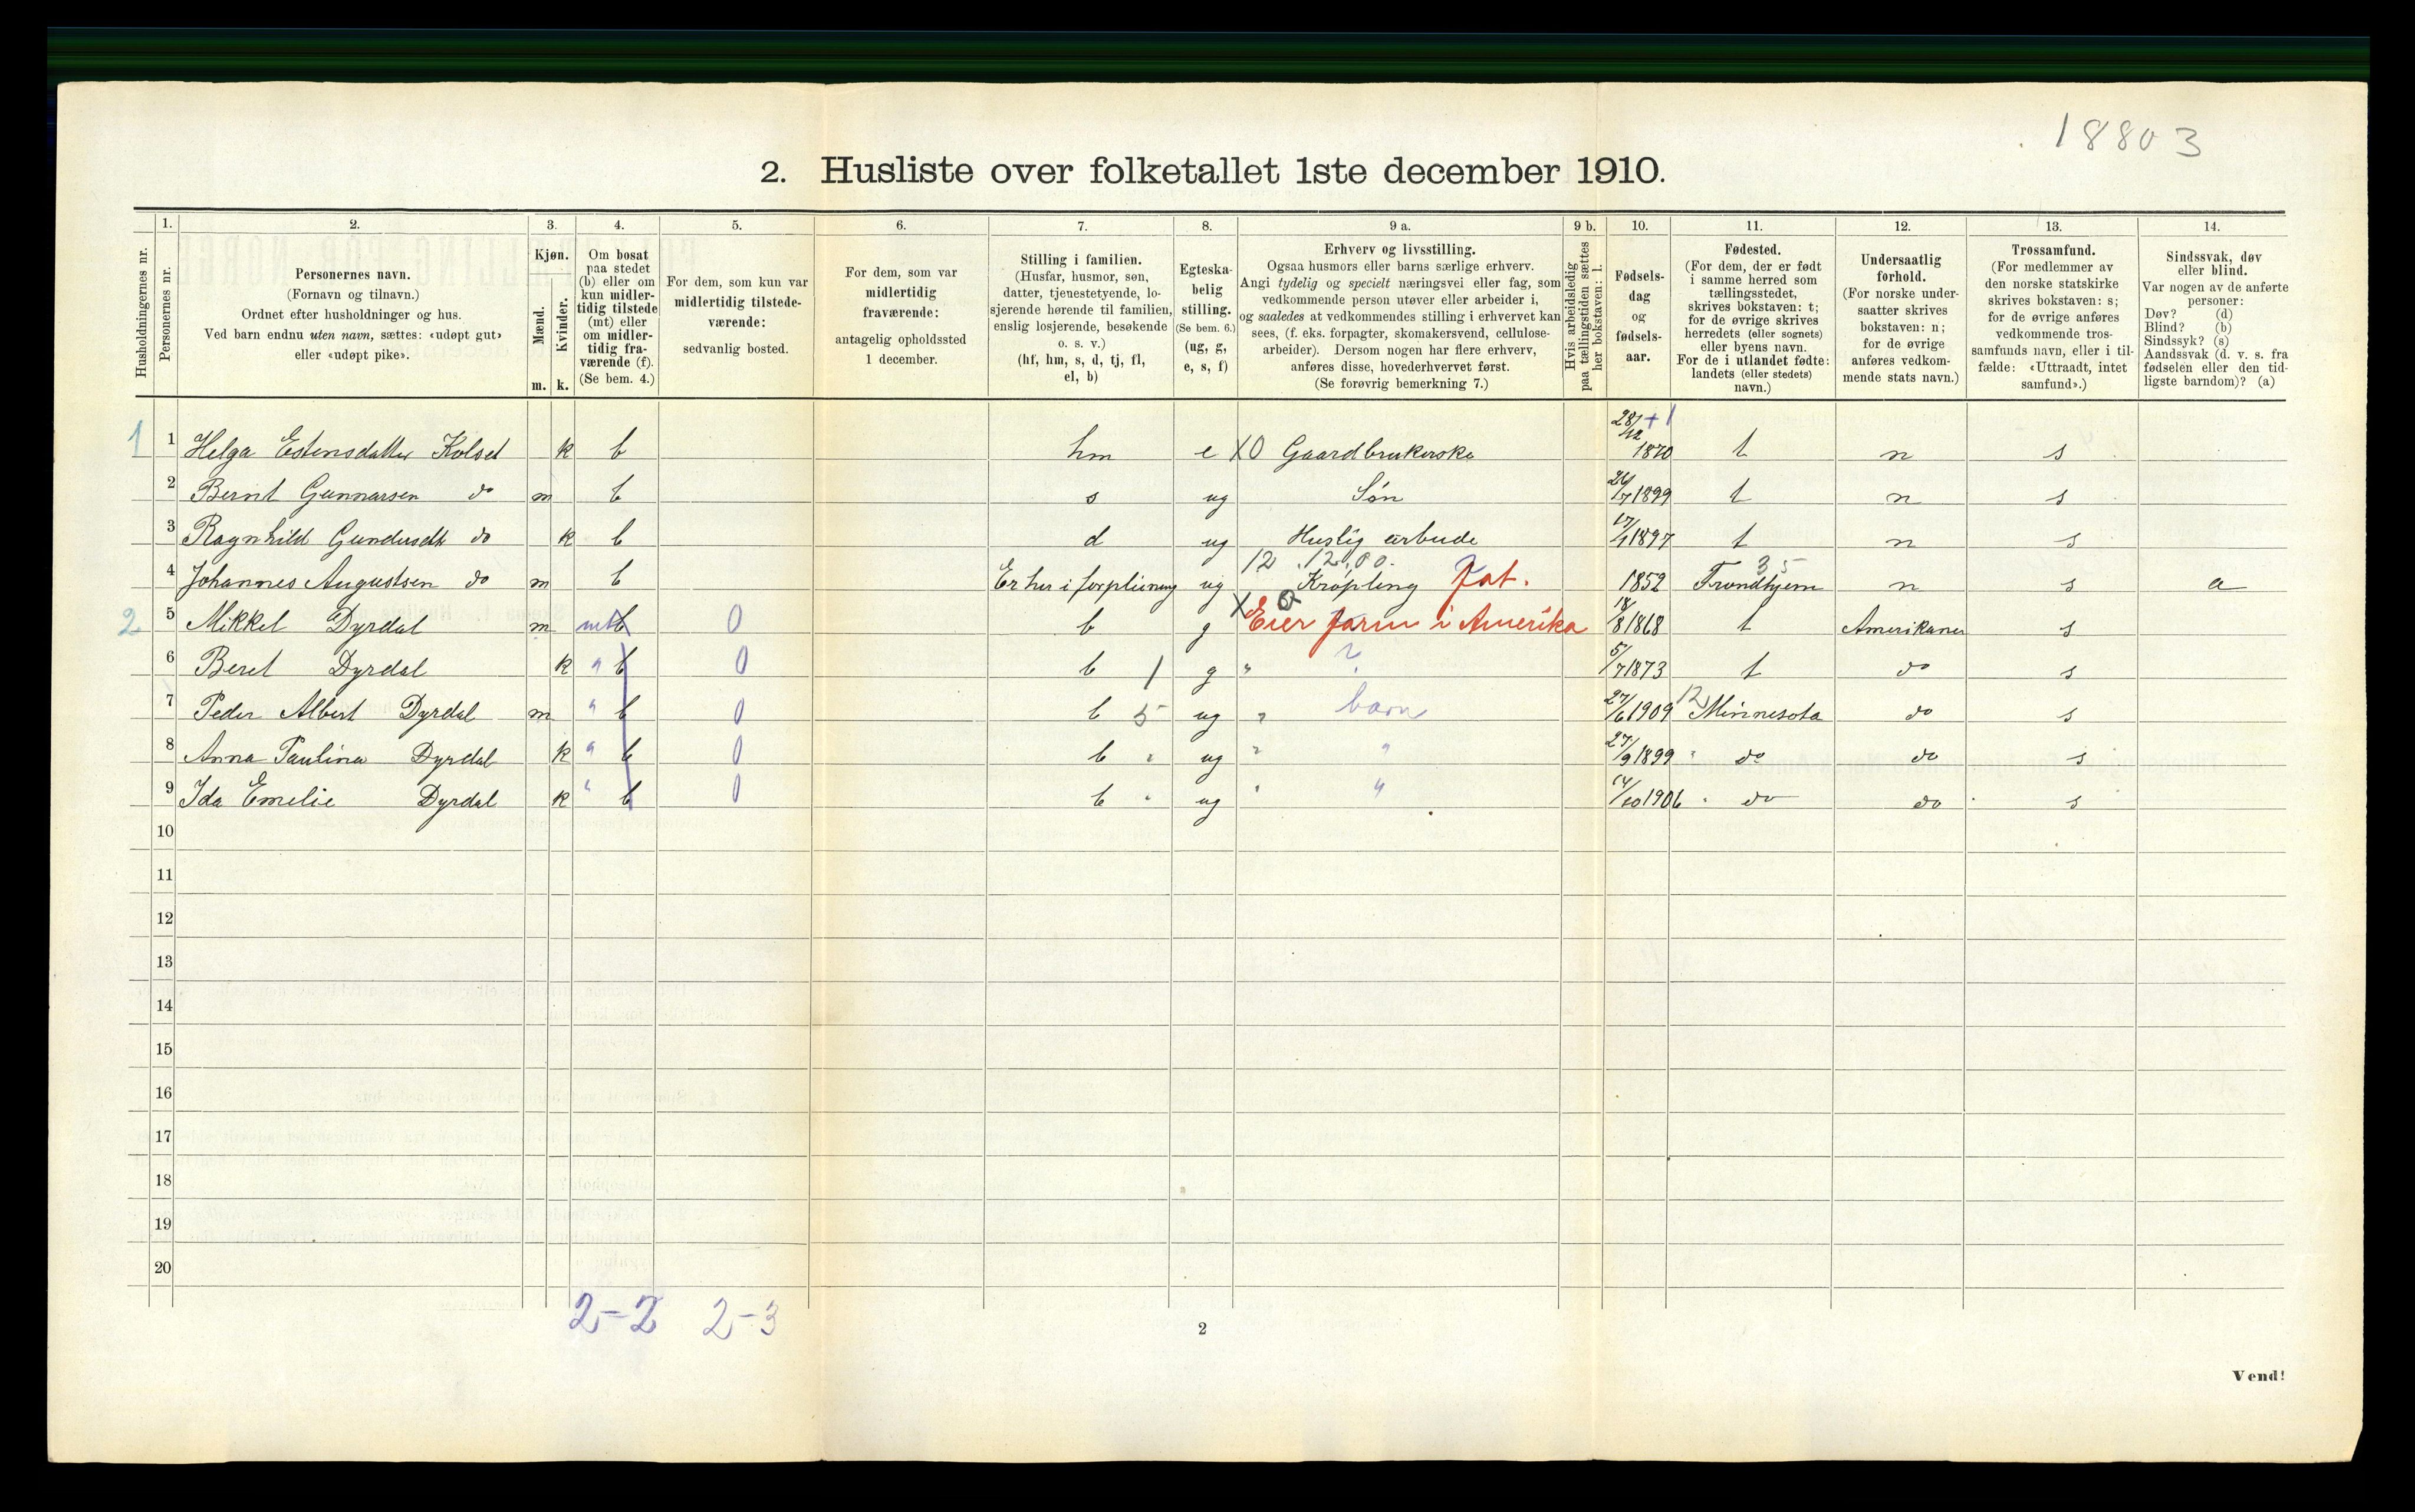 18803
2. Husliste over folketallet 1ste december 1910.
Husholdningernes nr.
1.
Personernes nr.
2.
Personernes navn.
(Fornavn og tilnavn.)
Ordnet efter husholdninger og hus.
Ved barn endnu uten navn, sættes: «udøpt gut»
eller «udøpt pike».
3.
Kjøn.
Mænd.
Kvinder.
m. k.
4.
Om bosat
paa stedet
(b) eller om
kun midler-
tidig tilstede
(mt) eller
om midler-
tidig fra-
værende (f).
(Se bem. 4.)
5.
For dem, som kun var
midlertidig tilstede-
værende:
sedvanlig bosted.
6.
For dem, som var
midlertidig
fraværende:
antagelig opholdssted
1 december.
7.
Stilling i familien.
(Husfar, husmor, søn,
datter, tjenestetyende, lo-
sjerende hørende til familien,
enslig losjerende, besøkende
o. s. v.)
(hf, hm, s, d, tj, fl,
el, b)
8.
Egteska-
belig
stilling.
(Se bem. 6.)
(ug, g,
e, s, f)
9 a.
Erhverv og livsstilling.
Ogsaa husmors eller barns særlige erhverv.
Angi tydelig og specielt næringsvei eller fag, som
vedkommende person utøver eller arbeider i,
og saaledes at vedkommendes stilling i erhvervet kan
sees, (f. eks. forpagter, skomakersvend, cellulose-
arbeider). Dersom nogen har flere erhverv,
anføres disse, hovederhvervet først.
(Se forøvrig bemerkning 7.)
9 b.
Hvis arbeidsledig
paa tællingstiden sættes
her bokstaven: l.
10.
Fødsels-
dag
og
fødsels-
aar.
11.
Fødested.
(For dem, der er født
i samme herred som
tællingsstedet,
skrives bokstaven: t;
for de øvrige skrives
herredets (eller sognets)
eller byens navn.
For de i utlandet fødte:
landets (eller stedets)
navn.)
12.
Undersaatlig
forhold.
(For norske under-
saatter skrives
bokstaven: n;
for de øvrige
anføres vedkom-
mende stats navn.)
13.
Trossamfund.
(For medlemmer av
den norske statskirke
skrives bokstaven: s;
for de øvrige anføres
vedkommende tros-
samfunds navn, eller i til-
fælde: «Uttraadt, intet
samfund».)
14.
Sindssvak, døv
eller blind.
Var nogen av de anførte
personer:
Døv? (d)
Blind? (b)
Sindssyk? (s)
Aandssvak (d. v. s. fra
fødselen eller den tid-
ligste barndom)? (a)
1 1 Helga Estensdatter Kolset k b hm e X0 Gaardbrukerske 28/12 1870 +1 t n s
2 Bernt Gunnarsen do m b s ug Søn 24/7 1899 t n s
3 Ragnhild Gundersdtr do k b d ug Huslig arbeide 17/1 1897 t n s
12 .12,00. 35
4 Johannes Augustsen do m b Er her i forpleining ug Krøpling Fat. 1852 Trondhjem n s a
2 5 Mikkel Dyrdal m mt b 0 b g X Eier farm i Amerika 18/8 1868 t Amerikaner s
6 Beret Dyrdal k " b 0 b 1 g " ? 5/7 1873 t do s
7 Peder Albert Dyrdal m " b 0 b 5 ug " barn 27/6 1909 12 Minnesota do s
8 Anna Paulina Dyrdal k " b 0 b " ug " " 27/9 1899 " do do s
9 Ida Emelie Dyrdal k " b 0 b " ug " " 14/10 1906 " do do s
10
11
12
13
14
15
16
17
18
19
20
2-2 2-3
2
Vend!